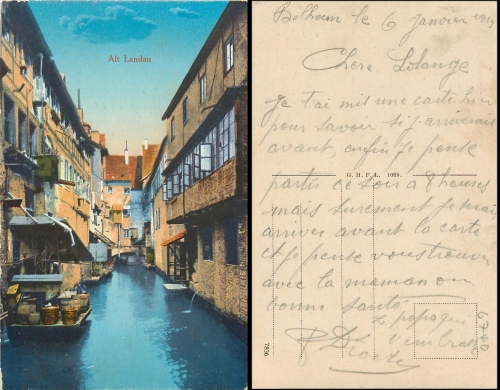 Alt Landau
Belheim le 6 Janvier 1919
Chere Solange
Je t'ai mis une carte hier
pour savoir si j'arriverais
avant, enfin je pense
G. H. F. L. 1089.
partir ce soir a 8 heures
mais surement je vais
arriver avant la carte
et je pense vous trouver
avec la maman en
bonne santé
Le papa qui
t'embrasse
7836